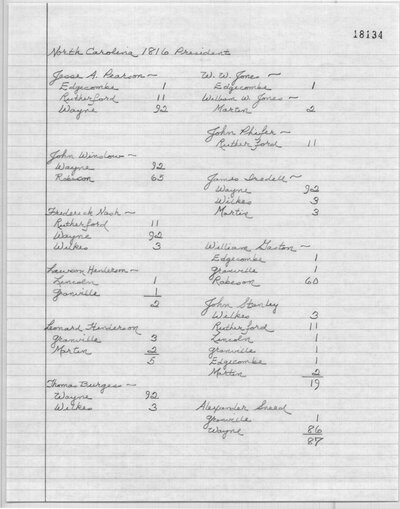 18134
North Carolina 1816 President
Jesse A. Pearson ~
Edgecombe 1
Rutherford 11
Wayne 92
John Winslow ~
Wayne 92
Robeson 65
Frederick Nash ~
Rutherford 11
Wayne 92
Wilkes 3
Lawson Henderson ~
Lincoln 1
Granville 1
2
Leonard Henderson
Granville 3
Martin 2
5
Thomas Burgess ~
Wayne 92
Wilkes 3
W. W. Jones ~
Edgecombe 1
William W. Jones ~
Martin 2
John Phifer ~
Rutherford 11
James Iredell ~
Wayne 92
Wilkes 3
Martin 3
William Gaston ~
Edgecombe 1
Granville 1
Robeson 60
John Stanley
Wilkes 3
Rutherford 11
Lincoln 1
Granville 1
Edgecombe 1
Martin 2
19
Alexander Sneed
Granville 1
Wayne 86
87